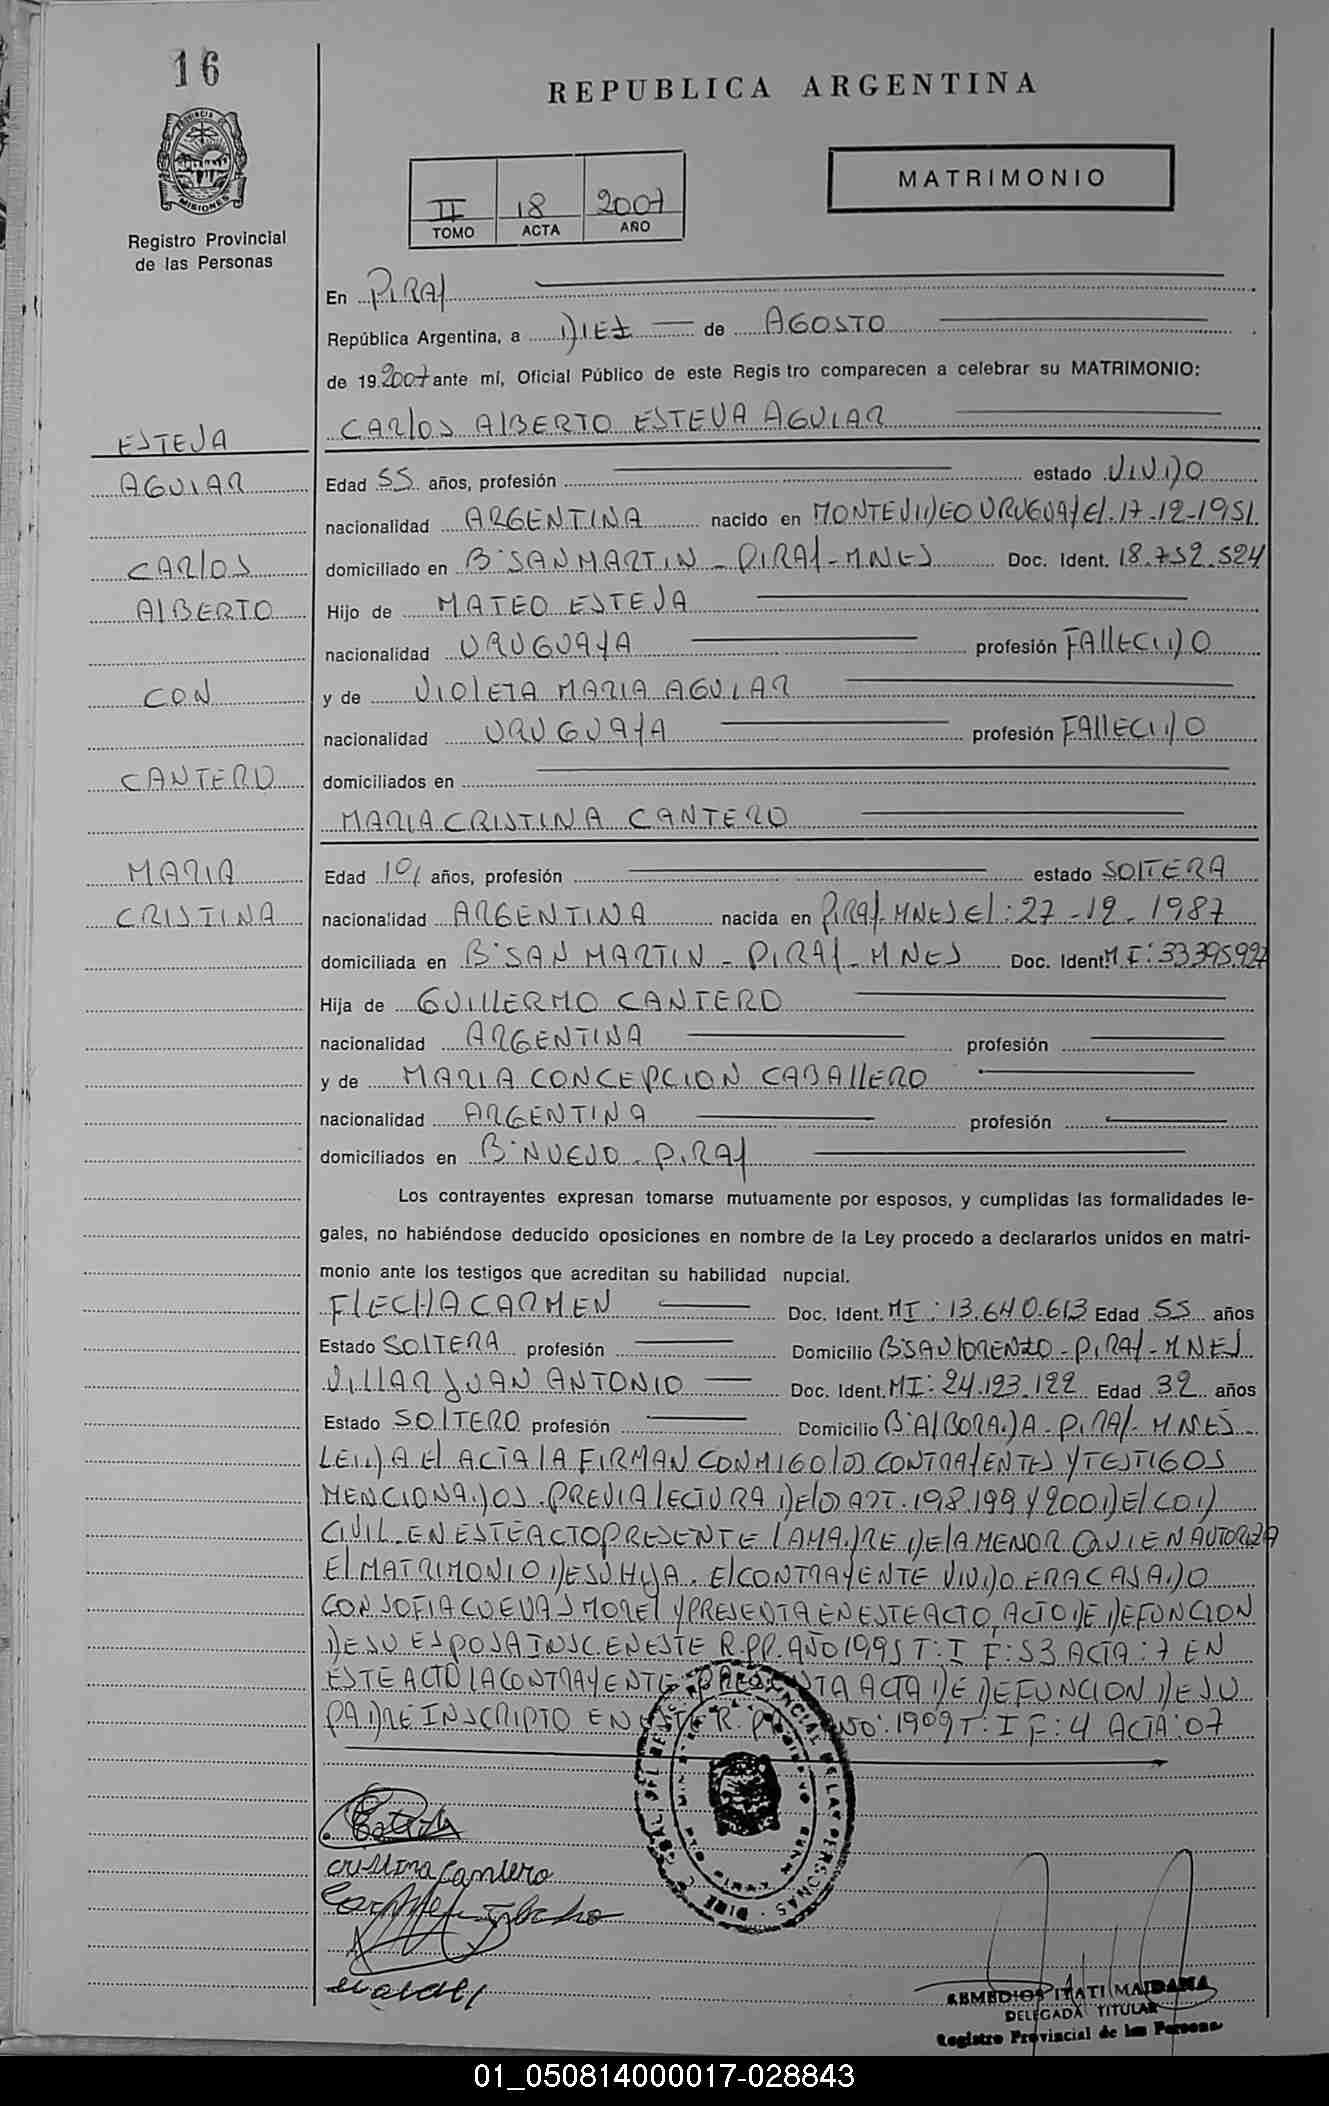 16
REPUBLICA ARGENTINA
PROVINCIA DE
MISIONES
Registro Provincial
de las Personas
MATRIMONIO
II 18 2007
TOMO ACTA AÑO
En PIRAY
República Argentina, a DIEZ de AGOSTO
de 19 2007 ante mí, Oficial Público de este Registro comparecen a celebrar su MATRIMONIO:
CARLOS ALBERTO ESTEVA AGUIAR
ESTEVA
AGUIAR
CARLOS
ALBERTO
CON
CANTERO
MARIA
CRISTINA
Edad 55 años, profesión estado VIUDO
nacionalidad ARGENTINA nacido en MONTEVIDEO URUGUAY El 17-12-1951
domiciliado en Bº SAN MARTIN - PIRAY - MNES Doc. Ident. 18.752.524
Hijo de MATEO ESTEVA
nacionalidad URUGUAYA profesión FALLECIDO
y de VIOLETA MARIA AGUIAR
nacionalidad URUGUAYA profesión FALLECIDO
domiciliados en
MARIA CRISTINA CANTERO
Edad 19 años, profesión estado SOLTERA
nacionalidad ARGENTINA nacida en PIRAY-MNES El: 27-12-1987
domiciliada en Bº SAN MARTIN - PIRAY - MNES Doc. Ident. MI: 33.395.927
Hija de GUILLERMO CANTERO
nacionalidad ARGENTINA profesión
y de MARIA CONCEPCION CABALLERO
nacionalidad ARGENTINA profesión
domiciliados en Bº NUEVO - PIRAY
Los contrayentes expresan tomarse mutuamente por esposos, y cumplidas las formalidades le-
gales, no habiéndose deducido oposiciones en nombre de la Ley procedo a declararlos unidos en matri-
monio ante los testigos que acreditan su habilidad nupcial.
FLECHA CARMEN Doc. Ident. MI: 13.640.613 Edad 55 años
Estado SOLTERA profesión Domicilio Bº SAN LORENZO - PIRAY - MNES
VILLAR JUAN ANTONIO Doc. Ident. MI: 24.123.122 Edad 32 años
Estado SOLTERO profesión Domicilio Bº ALBORADA - PIRAY - MNES
LEIDA El ACTA LA FIRMAN CONMIGO LOS CONTRAYENTES Y TESTIGOS
MENCIONADOS. PREVIA LECTURA DE LOS ART. 198.199 Y 200 DEL COD
CIVIL. EN ESTE ACTO PRESENTE LA MADRE DE LA MENOR QUIEN AUTORIZA
El MATRIMONIO DE SU HIJA. El CONTRAYENTE VIUDO ERA CASADO
CON SOFIA CUEVAS MOREL Y PRESENTA EN ESTE ACTO, ACTO DE DEFUNCION
DE SU ESPOSA INSC. EN ESTE R.PP. AÑO 1995 T: I F: 53 ACTA: 7 EN
ESTE ACTO LA CONTRAYENTE PRESENTA ACTA DE DEFUNCION DE SU
PADRE INSCRIPTO EN ESTE R.P. AÑO: 1909 T: I F: 4 ACTA: 07
Cristina Cantero
ITATI MAIDANA
DELEGADA TITULAR
Registro Provincial de las Personas
01_050814000017-028843